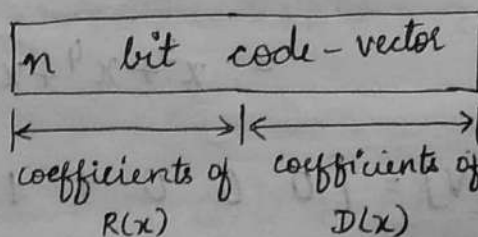 n bit code-vector
coefficients of coefficients of
R(x) D(x)